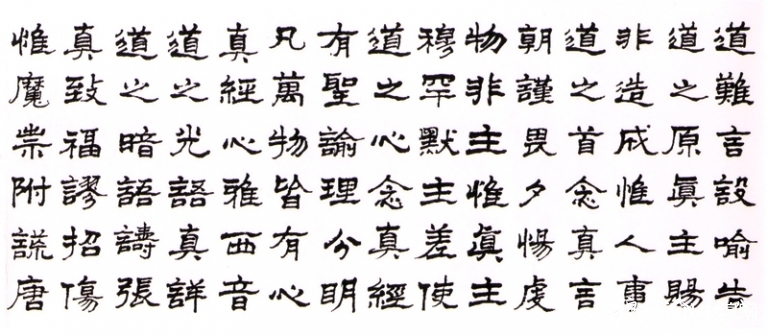 道難言設喻告
道之原眞主賜
非造成惟人事
道之首念真言
朝謹畏夕惕虔
物非主惟眞主
穆罕默主差使
道之心念真經
有聖諭理分明
凡萬物皆有心
真經心雅西音
道之光語真詳
道之暗語譸張
真致福謬招傷
惟魔祟附謊唐